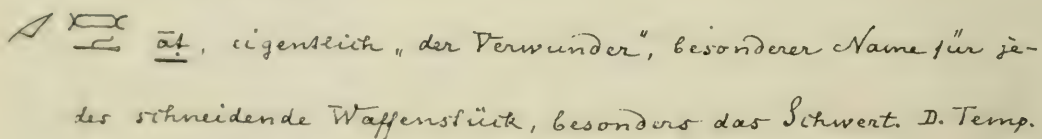 āṭ, eigentlich „der Verwunder", besonderer Name für je-
des schneidende Waffenstück, besonders das Schwert. D. Temp.